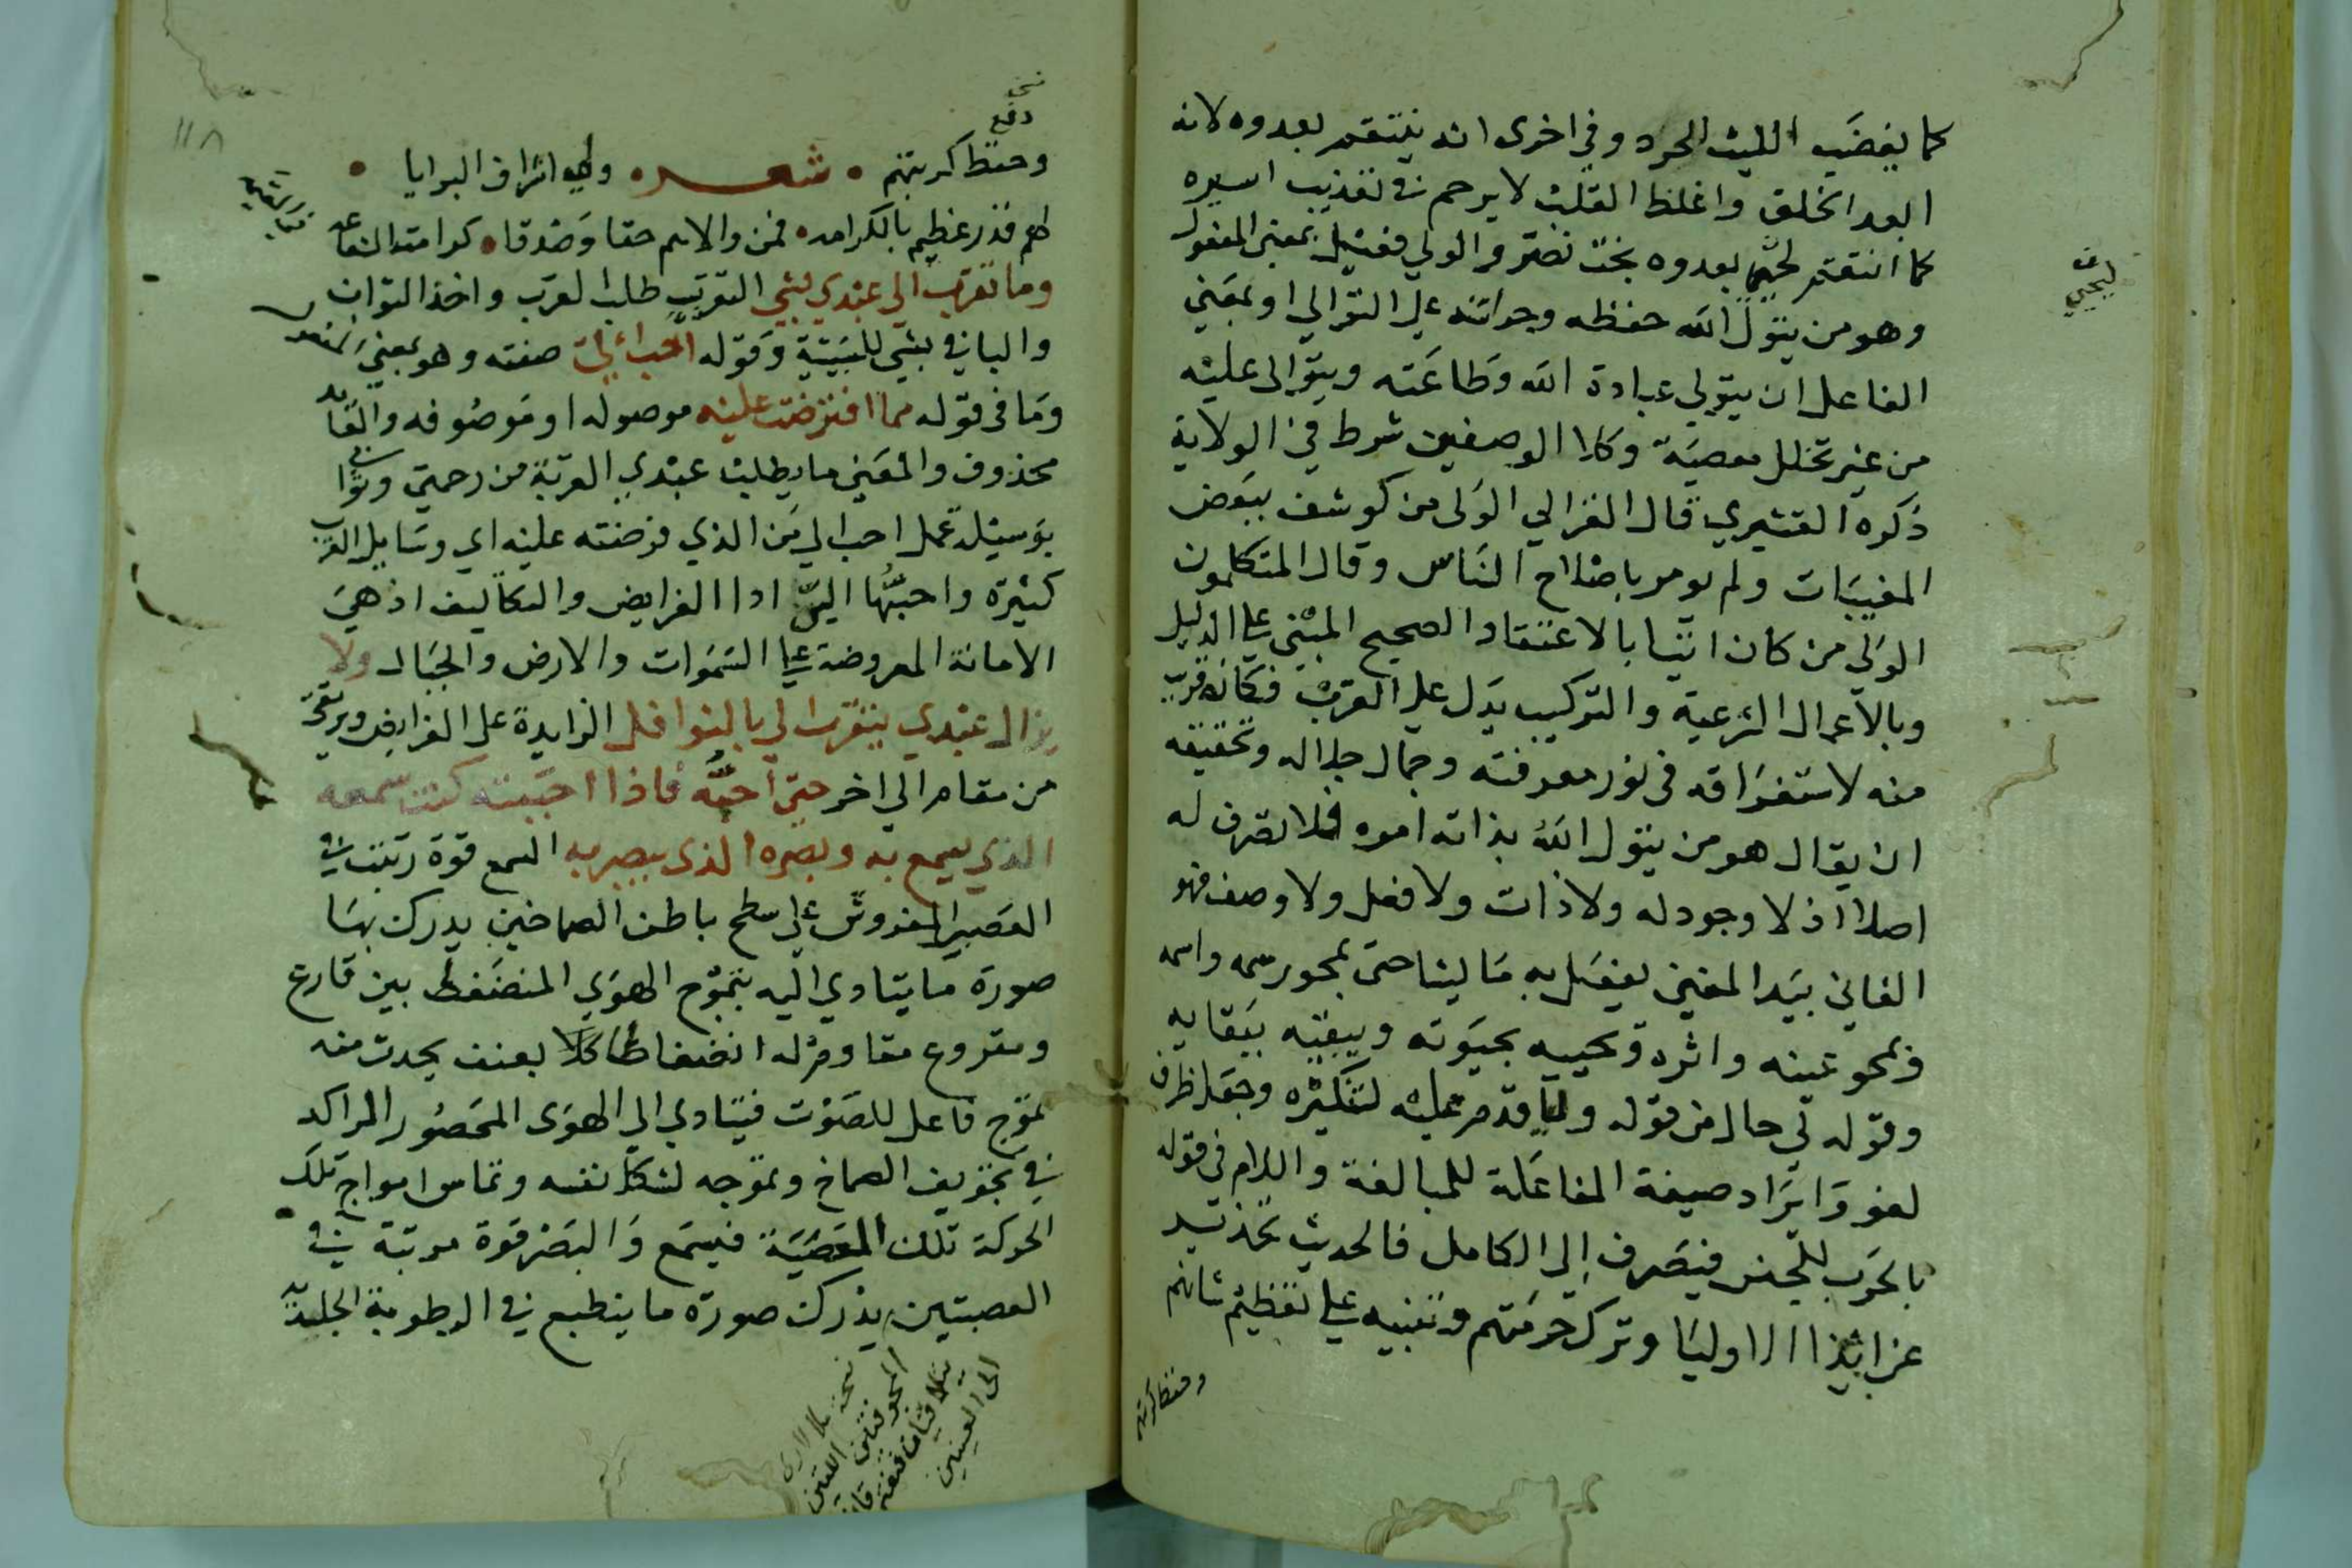 كما يغضب الليث الحرد وفي اخرى انه ينتقم بعدوه لانه
ابعد الخلق واغلظ القلب لا يرحم في تعذيب اسيره
كما انتقم ليحيى بعدوه بخت نصر والولي فعيل بمعنى المفعول
وهو من يتول الله حفظه وحراسته على التوالي او بمعنى
الفاعل ان يتولى عبادة الله وطاعته ويتوالى عليه
من غير تخلل معصية وكلا الوصفين شرط في الولاية
ذكره القشيري قال الغزالي الولى من كوشف ببعض
المغيبات ولم يومر باصلاح الناس وقال المتكلمون
الولى من كان اتيا بالاعتقاد الصحيح المبني على الدليل
وبالاعمال الشرعية والتركيب يدل على القرب فكانه قرب
منه لاستغراقه في نور معرفته وجمال جلاله وتحقيقه
ان يقال هو من يتول الله بذاته اموره فلا تصرف له
اصلا اذ لا وجود له ولا ذات ولا فعل ولا وصف فهو
الفاني بيد المفني يفعل به ما يشا حتى يمحو رسمه واسمه
ويمحو عينه واثره ويحييه بحيوته ويبقيه ببقايه
وقوله لي حال من قوله وليا قدم عليه لتنكيره وجعله ظرف
لغو وايراد صيغة المفاعلة للمبالغة واللام في قوله
بالحرب للجنس فينصرف الى الكامل فالحديث تحذير
عن ايذا الاوليا وترك حرمتهم وتنبيه على تعظيم شانهم
وحفظ كربتهم
ليحيى
١١٨
نخ
دفع
وحفظ كربتهم • شعر • وليه اشراف البرايا •
لهم قدر عظيم بالكرامه • فمن والاهم حقا وصدقا • كرامته الشفاعه
وما تقرب الي عبدي بشي التقرب طلب القرب واخذ الثواب
والبا في بشي للسببية وقوله احب الي صفته وهو بمعنى المفعول
وما في قوله مما افترضت عليه موصوله او موصوفه والعايد
محذوف والمعنى ما يطلب عبدي القربة من رحمتي وثوابي
بوسيلة عمل احب الي من الذي فرضته عليه اي وسايل القرب
كثيرة واحبها الي ادا الفرايض والتكاليف اذ هي
الامانة المعروضة على السموات والارض والجبال ولا
يزال عبدي يتقرب الي بالنوافل الزايدة على الفرايض ويرتقي
من مقام الي اخر حتى احبه فاذا احببته كنت سمعه
الذي يسمع به وبصره الذي يبصر به السمع قوة رتبت في
العصب المفروش على سطح باطن الصماخين يدرك بها
صورة ما يتادي اليه بتموج الهوي المنضغط بين قارع
ومقروع مقاوم له انضغاطا كلا بعنف يحدث منه
تموج فاعل للصوت فيتادي الي الهوى المحصور الراكد
في تجويف الصماخ وتموجه لشكل نفسه وتماس امواج تلك
الحركة تلك العصبية فيسمع والبصر قوة مرتبة في
العصبتين يدرك صورة ما ينطبع في الرطوبة الجليدية
المجوفتين اللتين
الى العينين